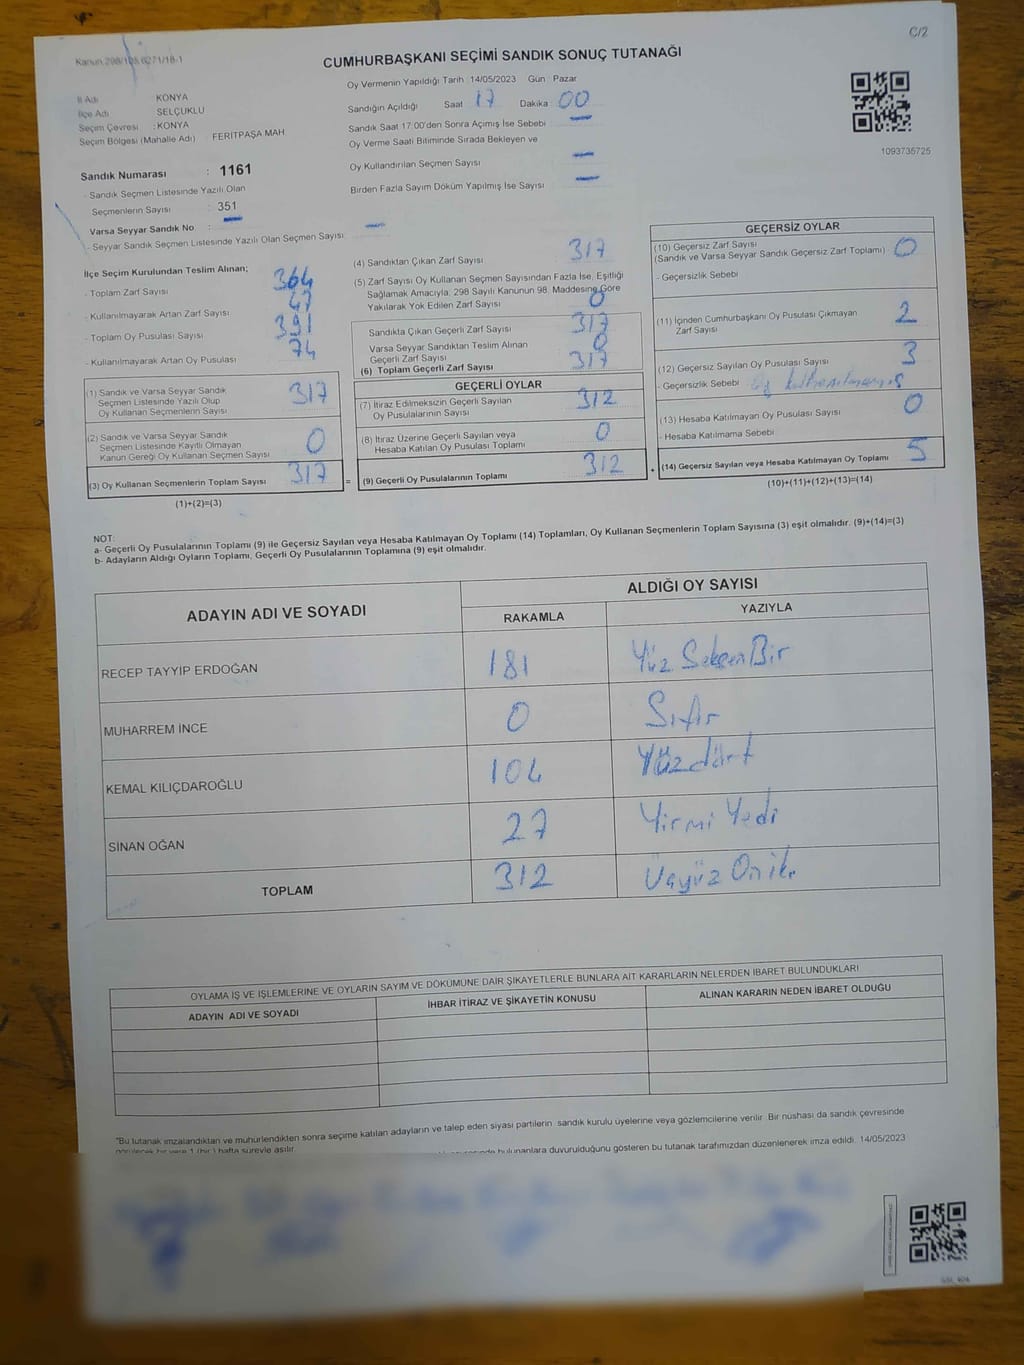 C/2
Kanun.298/105,6271/18-1
CUMHURBAŞKANI SEÇİMİ SANDIK SONUÇ TUTANAĞI
Oy Vermenin Yapıldığı Tarih : 14/05/2023 Gün : Pazar
İl Adı : KONYA
İlçe Adı : SELÇUKLU
Seçim Çevresi : KONYA
Seçim Bölgesi (Mahalle Adı) : FERİTPAŞA MAH
Sandık Numarası : 1161
- Sandık Seçmen Listesinde Yazılı Olan
Seçmenlerin Sayısı : 351
Varsa Seyyar Sandık No :
- Seyyar Sandık Seçmen Listesinde Yazılı Olan Seçmen Sayısı:
Sandığın Açıldığı Saat 17 Dakika 00
Sandık Saat 17:00'den Sonra Açımış İse Sebebi
Oy Verme Saati Bitiminde Sırada Bekleyen ve
Oy Kullandırılan Seçmen Sayısı
Birden Fazla Sayım Döküm Yapılmış İse Sayısı
1093735725
İlçe Seçim Kurulundan Teslim Alınan;
- Toplam Zarf Sayısı 364
- Kullanılmayarak Artan Zarf Sayısı 47
- Toplam Oy Pusulası Sayısı 391
- Kullanılmayarak Artan Oy Pusulası 74
(1) Sandık ve Varsa Seyyar Sandık
Seçmen Listesinde Yazılı Olup
Oy Kullanan Seçmenlerin Sayısı 317
(2) Sandık ve Varsa Seyyar Sandık
Seçmen Listesinde Kayıtlı Olmayan
Kanun Gereği Oy Kullanan Seçmen Sayısı 0
(3) Oy Kullanan Seçmenlerin Toplam Sayısı 317
(1)+(2)=(3)
=
(4) Sandıktan Çıkan Zarf Sayısı 317
(5) Zarf Sayısı Oy Kullanan Seçmen Sayısından Fazla İse, Eşitliği
Sağlamak Amacıyla, 298 Sayılı Kanunun 98. Maddesine Göre
Yakılarak Yok Edilen Zarf Sayısı 0
Sandıkta Çıkan Geçerli Zarf Sayısı 317
Varsa Seyyar Sandıktan Teslim Alınan
Geçerli Zarf Sayısı 0
(6) Toplam Geçerli Zarf Sayısı 317
GEÇERLİ OYLAR
(7) İtiraz Edilmeksizin Geçerli Sayılan
Oy Pusulalarının Sayısı 312
(8) İtiraz Üzerine Geçerli Sayılan veya
Hesaba Katılan Oy Pusulası Toplamı 0
(9) Geçerli Oy Pusulalarının Toplamı 312
+
GEÇERSİZ OYLAR
(10) Geçersiz Zarf Sayısı
(Sandık ve Varsa Seyyar Sandık Geçersiz Zarf Toplamı) 0
- Geçersizlik Sebebi
(11) İçinden Cumhurbaşkanı Oy Pusulası Çıkmayan
Zarf Sayısı 2
(12) Geçersiz Sayılan Oy Pusulası Sayısı 3
- Geçersizlik Sebebi
(13) Hesaba Katılmayan Oy Pusulası Sayısı 0
- Hesaba Katılmama Sebebi
(14) Geçersiz Sayılan veya Hesaba Katılmayan Oy Toplamı 5
(10)+(11)+(12)+(13)=(14)
NOT:
a- Geçerli Oy Pusulalarının Toplamı (9) ile Geçersiz Sayılan veya Hesaba Katılmayan Oy Toplamı (14) Toplamları, Oy Kullanan Seçmenlerin Toplam Sayısına (3) eşit olmalıdır. (9)+(14)=(3)
b- Adayların Aldığı Oyların Toplamı, Geçerli Oy Pusulalarının Toplamına (9) eşit olmalıdır.
ADAYIN ADI VE SOYADI
ALDIĞI OY SAYISI
RAKAMLA YAZIYLA
RECEP TAYYIP ERDOĞAN 181 Yüz Seksen Bir
MUHARREM İNCE 0 Sıfır
KEMAL KILIÇDAROĞLU 104 Yüzdört
SİNAN OĞAN 27 Yirmi Yedi
TOPLAM 312 Üçyüz Oniki
OYLAMA İŞ VE İŞLEMLERİNE VE OYLARIN SAYIM VE DÖKÜMÜNE DAİR ŞİKAYETLERLE BUNLARA AİT KARARLARIN NELERDEN İBARET BULUNDUKLARI
ADAYIN ADI VE SOYADI
İHBAR İTİRAZ VE ŞİKAYETİN KONUSU
ALINAN KARARIN NEDEN İBARET OLDUĞU
"Bu tutanak imzalandıktan ve mühürlendikten sonra seçime katılan adayların ve talep eden siyasi partilerin sandık kurulu üyelerine veya gözlemcilerine verilir. Bir nüshası da sandık çevresinde
görülecek bir yere 1 (bir) hafta süreyle asılır. bulunanlara duyurulduğunu gösteren bu tutanak tarafımızdan düzenlenerek imza edildi. 14/05/2023